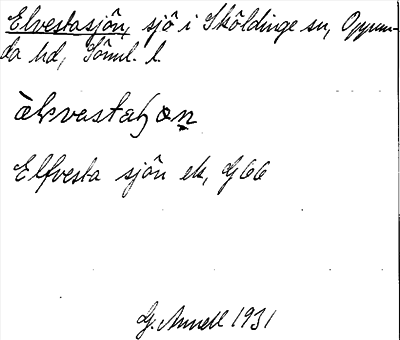 Elvestasjön, sjö i Sköldinge sn, Oppun-
da hd, Söml. l.
Elfvesta sjön ek, G66
G. Annell 1931